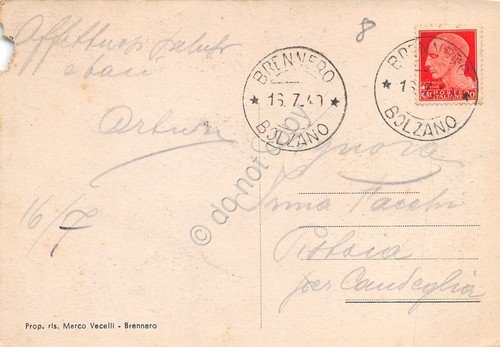 8
Affettuosi saluti
e baci
BRENNERO
* 16.7.40 *
BOLZANO
BRENNERO
* 16.7
BOLZANO
Arturo
16/7
Pistoia
per Candeglia
© do not copy
Prop. ris. Marco Vecelli - Brennero